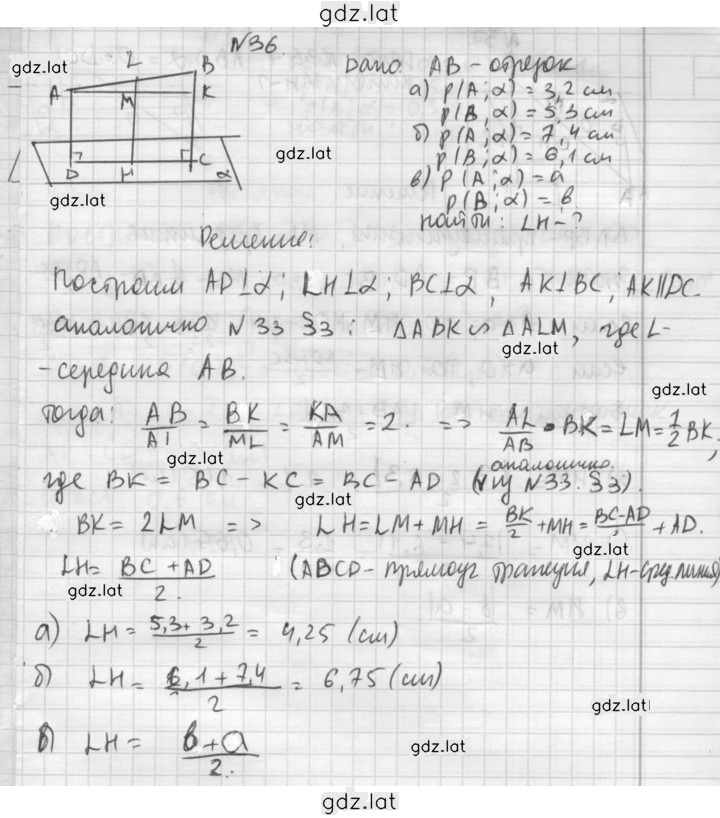 gdz.lat
N36.
gdz.lat
L
B
A
M
K
D
H
C
α
gdz.lat
gdz.lat
Дано: AB - отрезок
а) ρ(A; α) = 3,2 см
ρ(B, α) = 5,3 см
б) ρ(A; α) = 7,4 см
ρ(B; α) = 6,1 см
в) ρ(A; α) = a
ρ(B; α) = в
найти: LH - ?
Решение:
Построим AD⊥α; LH⊥α; BC⊥α, AK⊥BC; AK∥DC.
аналогично N33 §3: ΔABK ∽ ΔALM, где L-
gdz.lat
-середина AB.
gdz.lat
тогда: AB/Al = BK/ML = KA/AM = 2. => AL/AB • BK = LM = 1/2 BK,
gdz.lat
где BK = BC - KC = BC - AD (аналогично из N33. §3).
gdz.lat
BK = 2LM => LH = LM + MH = BK/2 + MH = BC-AD/2 + AD.
LH = BC + AD/2. (ABCD - прямоуг трапеция, LH - сред линия)
gdz.lat
а) LH = 5,3 + 3,2/2 = 4,25 (см)
б) LH = 6,1 + 7,4/2 = 6,75 (см)
gdz.lat
в) LH = в + a/2.
gdz.lat
gdz.lat